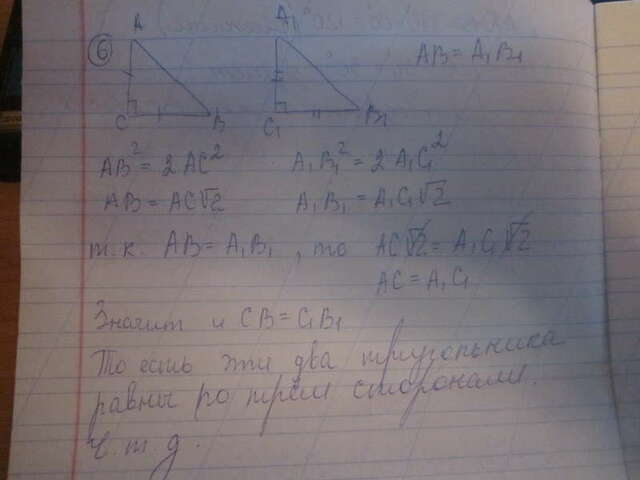 6
A
C
B
A₁
C₁
B₁
AB = A₁B₁
AB² = 2AC² A₁B₁² = 2A₁C₁²
AB = AC√2 A₁B₁ = A₁C₁√2
т.к. AB = A₁B₁, то AC√2 = A₁C₁√2
AC = A₁C₁
Значит и CB = C₁B₁
То есть эти два треугольника
равны по трём сторонам.
ч.т.д.